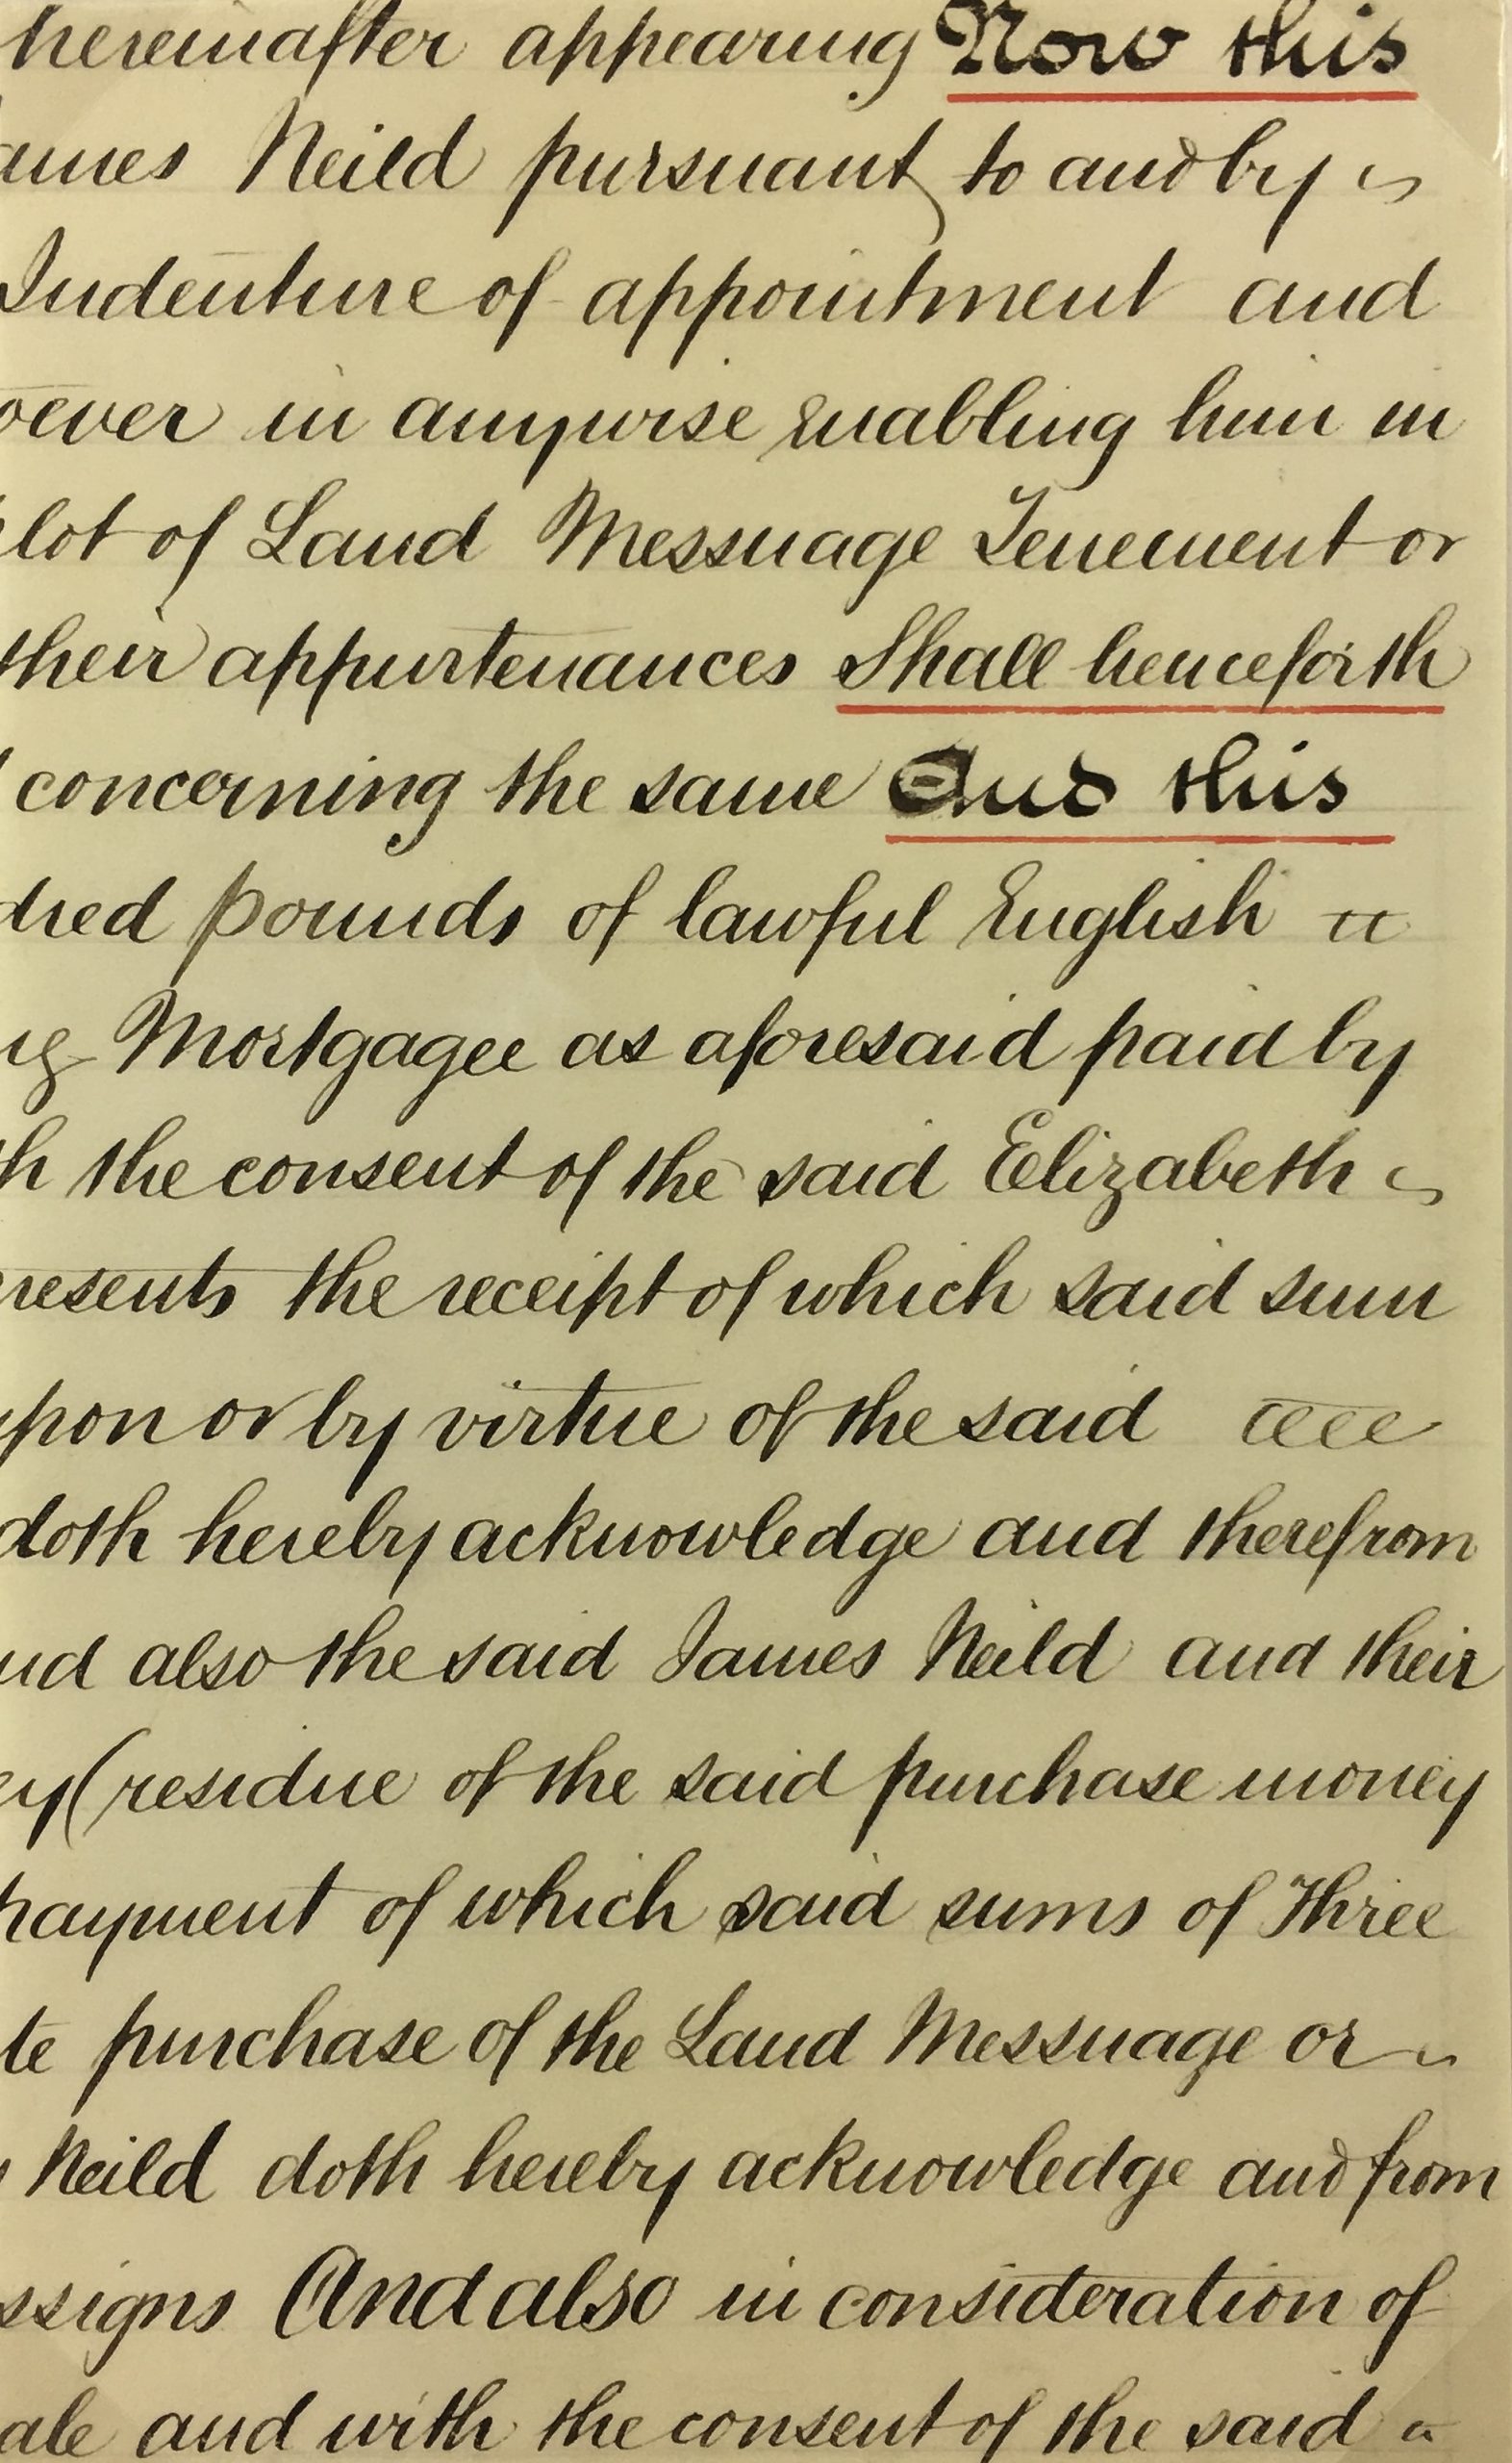 hereinafter appearing Now this
ames Neild pursuant to and by
Indenture of appointment and
oever in anywise enabling him in
lot of Land Messuage Tenement or
their appurtenances Shall henceforth
concerning the same And this
dred pounds of lawful English
Mortgagee as aforesaid paid by
h the consent of the said Elizabeth
resents the receipt of which said sum
pon or by virtue of the said
doth hereby acknowledge and therefrom
nd also the said James Neild and their
ey (residue of the said purchase money
payment of which said sums of Three
te purchase of the Land Messuage or
Neild doth hereby acknowledge and from
ssigns And also in consideration of
ale and with the consent of the said